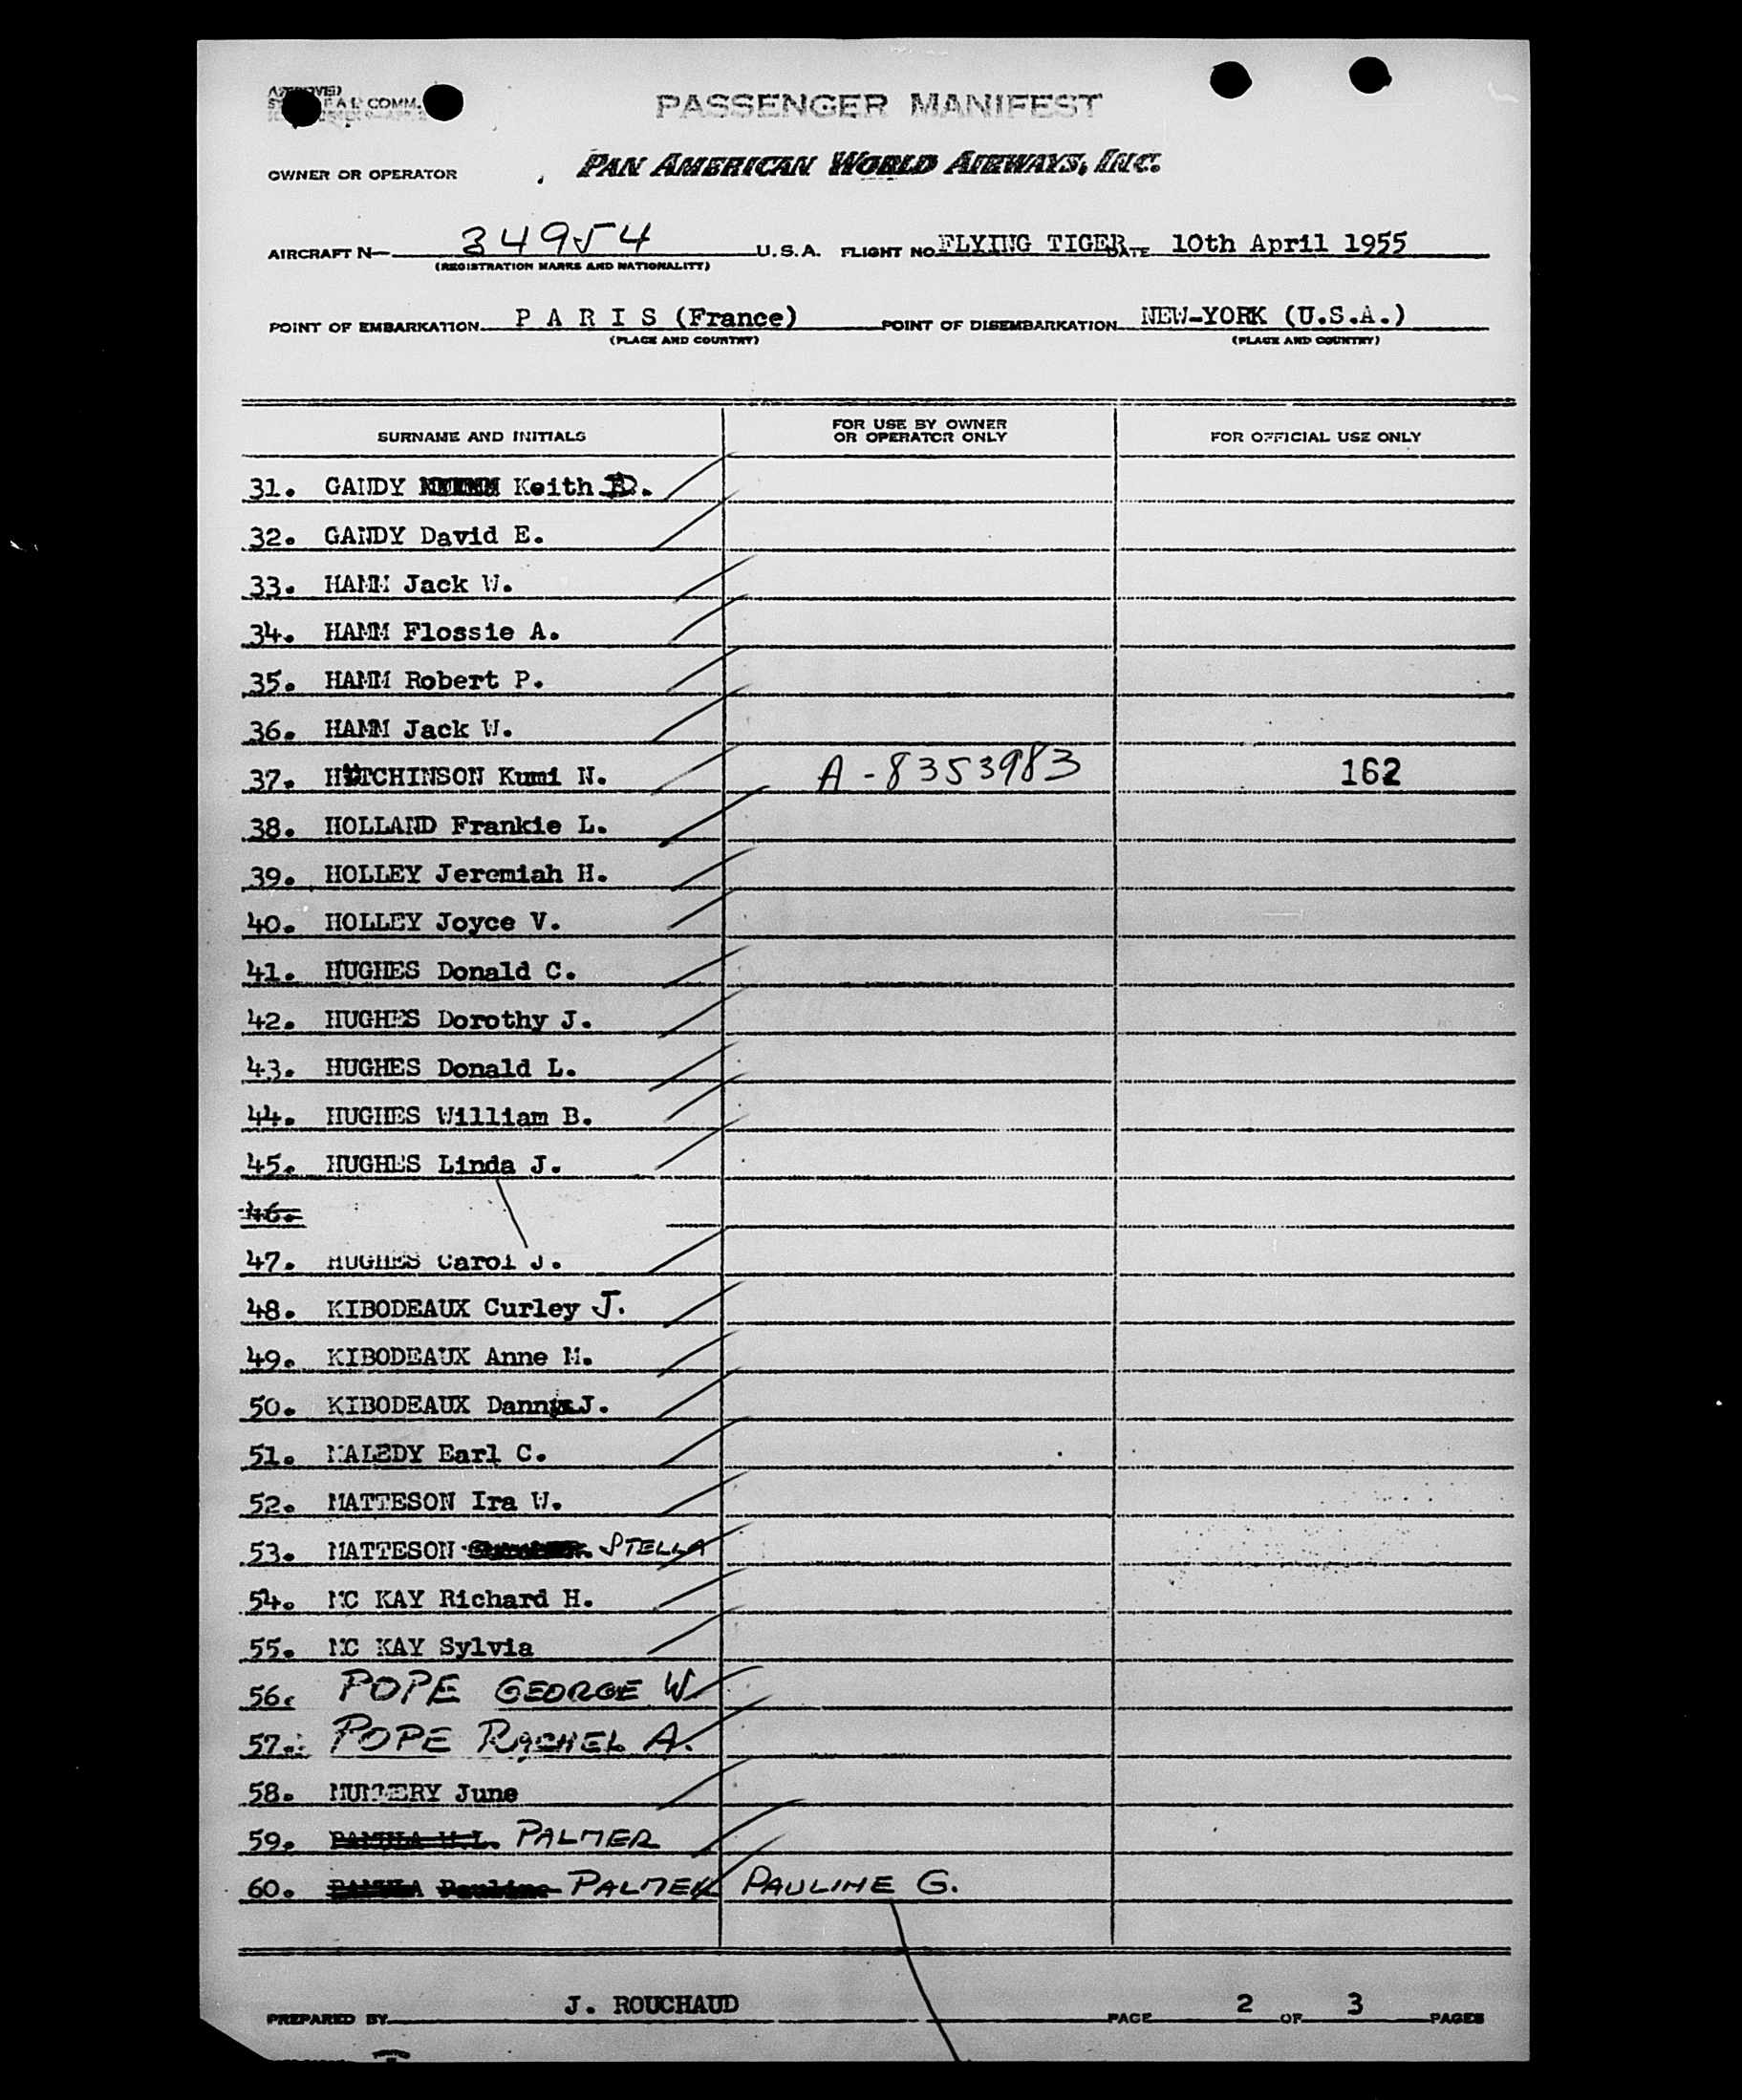 APPROVED
COMM.
PASSENGER MANIFEST
OWNER OR OPERATOR PAN AMERICAN WORLD AIRWAYS, INC.
AIRCRAFT N- 34954 U.S.A. FLIGHT NO. FLYING TIGER DATE 10th April 1955
(REGISTRATION MARKS AND NATIONALITY)
POINT OF EMBARKATION P A R I S (France) POINT OF DISEMBARKATION NEW-YORK (U.S.A.)
(PLACE AND COUNTRY) (PLACE AND COUNTRY)
SURNAME AND INITIALS FOR USE BY OWNER OR OPERATOR ONLY FOR OFFICIAL USE ONLY
31. GANDY Keith D.
32. GANDY David E.
33. HAMM Jack W.
34. HAMM Flossie A.
35. HAMM Robert P.
36. HAMM Jack W.
37. HUTCHINSON Kumi N. A-8353983 162
38. HOLLAND Frankie L.
39. HOLLEY Jeremiah H.
40. HOLLEY Joyce V.
41. HUGHES Donald C.
42. HUGHES Dorothy J.
43. HUGHES Donald L.
44. HUGHES William B.
45. HUGHES Linda J.
46.
47. HUGHES Carol J.
48. KIBODEAUX Curley J.
49. KIBODEAUX Anne M.
50. KIBODEAUX Danny J.
51. MALEDY Earl C.
52. MATTESON Ira W.
53. MATTESON STELLA
54. MC KAY Richard H.
55. MC KAY Sylvia
56. POPE GEORGE W.
57. POPE RACHEL A.
58. MUMMERY June
59. PAMULA W.L. PALMER
60. PAMULA Pauline PALMER PAULINE G.
PREPARED BY J. ROUCHAUD PAGE 2 OF 3 PAGES